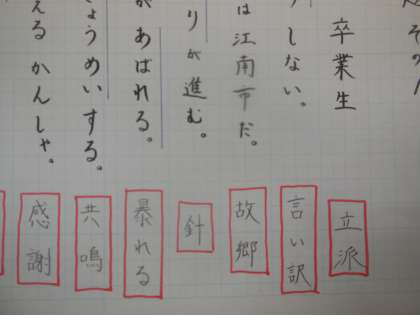 卒業生
しない。
は江南市だ。
りが進む。
があばれる。
ょうめいする。
える かんしゃ。
立派
言い訳
故郷
針
暴れる
共鳴
感謝